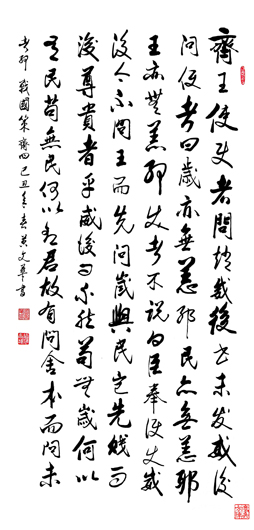 齊王使使者問趙威後書未發威後
問使者曰歲亦無恙耶民亦無恙耶
王亦無恙耶使者不說曰臣奉使使威
後今不問王而先問歲與民豈先賤而
後尊貴者乎威後曰不然苟無歲何以
有民苟無民何以有君故有問舍本而問末
者耶 戰國策齊四 己丑春黃文華書